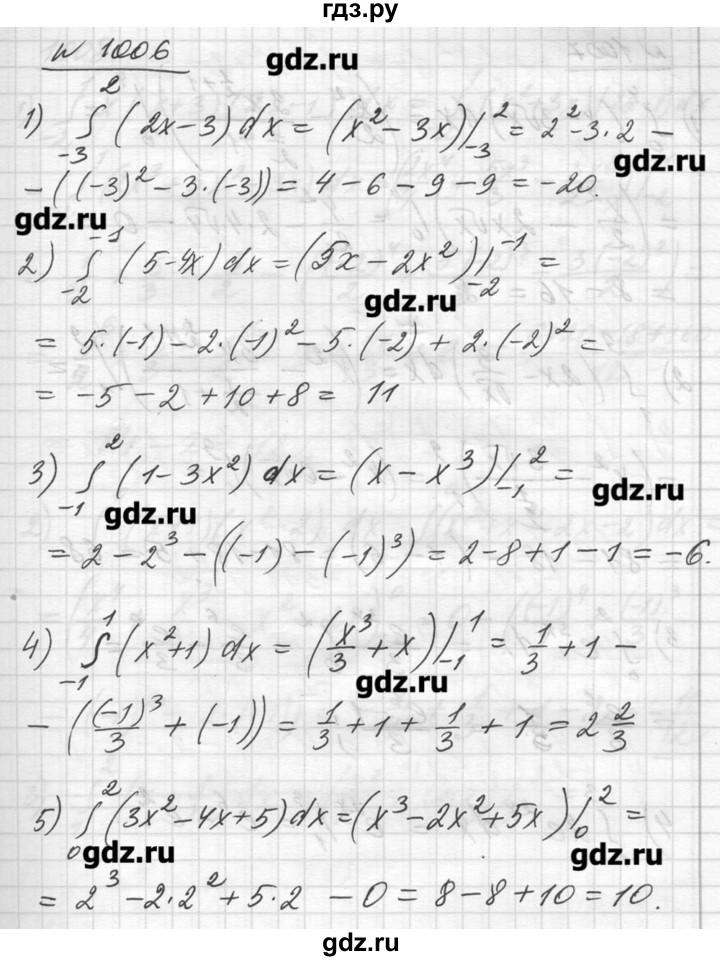 гдз.ру
N 1006
gdz.ru
1) ∫₋₃² (2x-3)dx = (x² - 3x)|₋₃² = 2² - 3·2 -
gdz.ru
- ((-3)² - 3·(-3)) = 4 - 6 - 9 - 9 = -20.
gdz.ru
2) ∫₋₂⁻¹ (5-4x)dx = (5x - 2x²)|₋₂⁻¹ =
gdz.ru
= 5·(-1) - 2·(-1)² - 5·(-2) + 2·(-2)² =
= -5 - 2 + 10 + 8 = 11
3) ∫₋₁² (1 - 3x²) dx = (x - x³)|₋₁² =
gdz.ru
gdz.ru
= 2 - 2³ - ((-1) - (-1)³) = 2 - 8 + 1 - 1 = -6.
4) ∫₋₁¹ (x²+1) dx = (x³/3 + x)|₋₁¹ = 1/3 + 1 -
gdz.ru
- ((-1)³/3 + (-1)) = 1/3 + 1 + 1/3 + 1 = 2 2/3
5) ∫₀² (3x² - 4x + 5)dx = (x³ - 2x² + 5x)|₀² =
gdz.ru
gdz.ru
= 2³ - 2·2² + 5·2 - 0 = 8 - 8 + 10 = 10.
gdz.ru